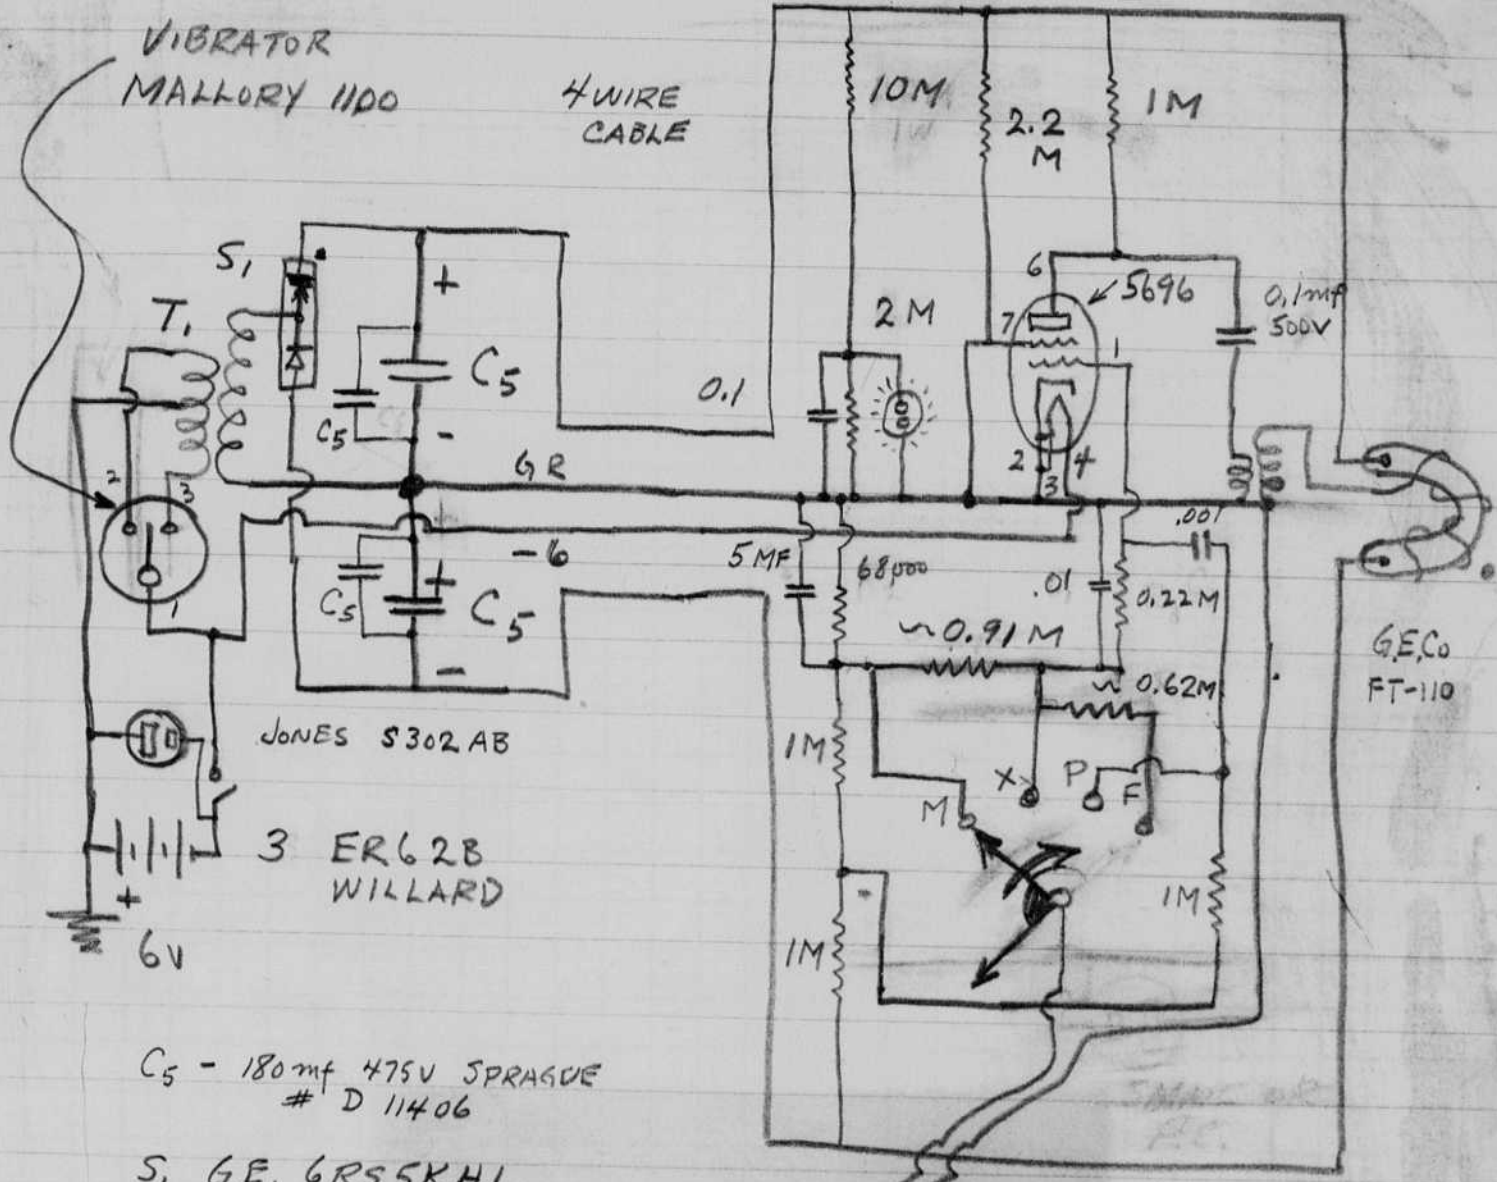 VIBRATOR
MALLORY 1100
4 WIRE
CABLE
10M
1W
2.2
M
1M
S1
T1
+
C5
C5
-
2M
0.1
6
5696
7
1
2
3
4
0.1mf
500V
GR
2
3
1
-6
C5
+
C5
-
5MF
68000
.01
.001
0.22M
~0.91M
~0.62M
G.E.Co
FT-110
JONES S302AB
1M
M
X
P
F
3 ER62B
WILLARD
+
6V
1M
-
1M
C5 - 180mf 475V SPRAGUE
# D 11406
S1 GE. 6RS5KH1